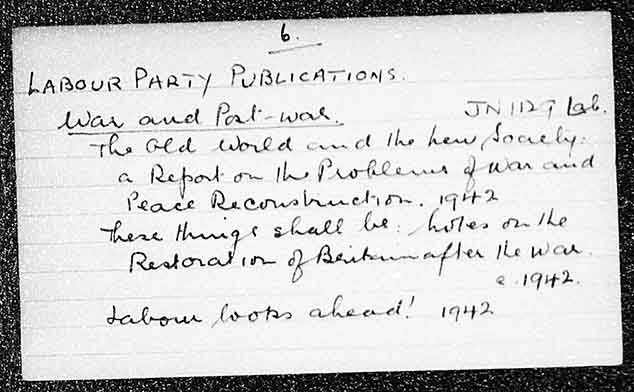 6.
LABOUR PARTY PUBLICATIONS.
War and Post-war. JN 1129 Lab.
The Old World and the New Society:
a Report on the Problems of War and
Peace Reconstruction. 1942
These things shall be: Notes on the
Restoration of Britain after the War.
c. 1942.
Labour looks ahead! 1942